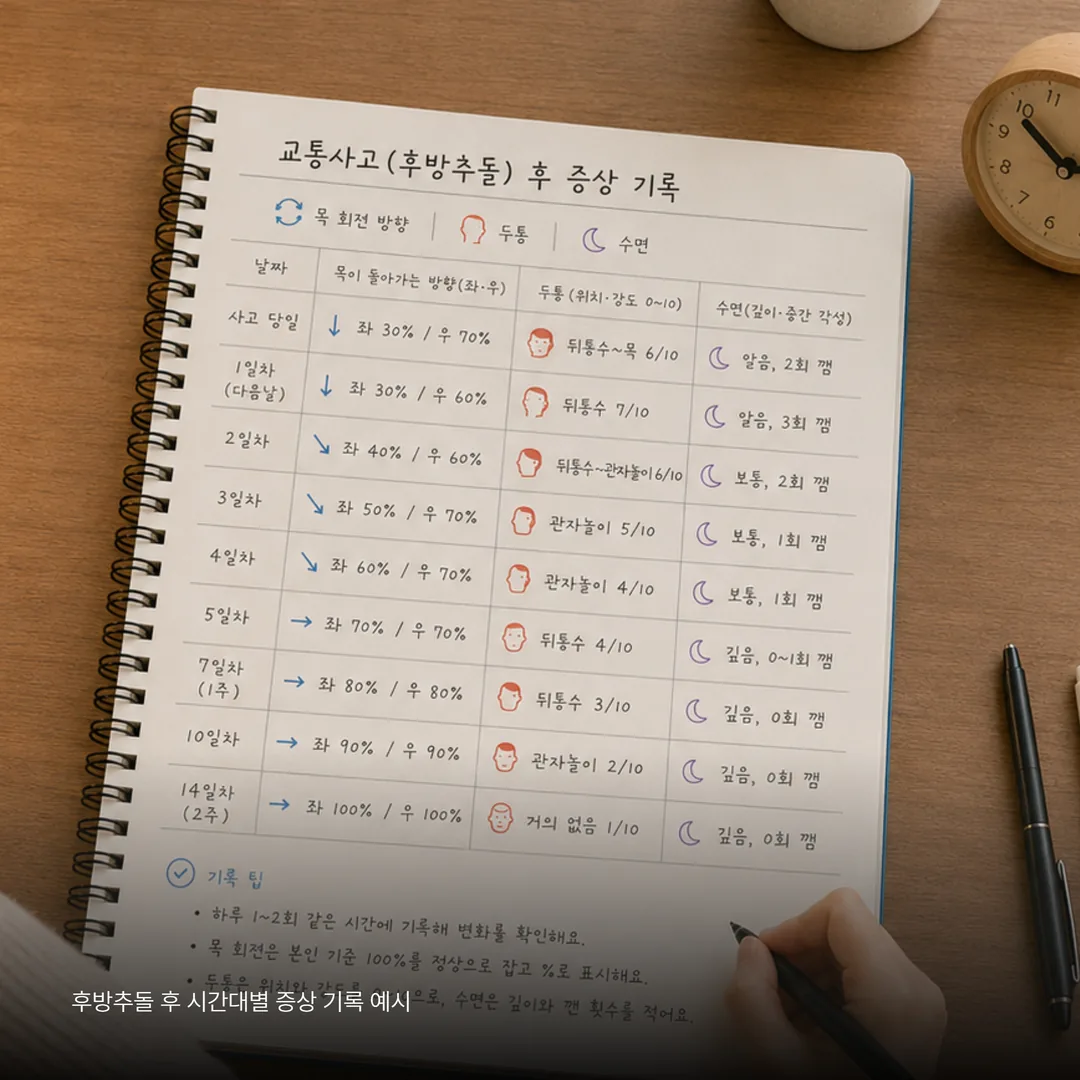 교통사고(후방추돌) 후 증상 기록
목 회전 방향 두통 수면
날짜 목이 돌아가는 방향(좌·우) 두통(위치·강도 0~10) 수면(깊이·중간 각성)
사고 당일 ↓ 좌 30% / 우 70% 뒤통수~목 6/10 얕음, 2회 깸
1일차
(다음날) ↓ 좌 30% / 우 60% 뒤통수 7/10 얕음, 3회 깸
2일차 ↘ 좌 40% / 우 60% 뒤통수~관자놀이 6/10 보통, 2회 깸
3일차 ↘ 좌 50% / 우 70% 관자놀이 5/10 보통, 1회 깸
4일차 ↘ 좌 60% / 우 70% 관자놀이 4/10 보통, 1회 깸
5일차 → 좌 70% / 우 70% 뒤통수 4/10 깊음, 0~1회 깸
7일차
(1주) → 좌 80% / 우 80% 뒤통수 3/10 깊음, 0회 깸
10일차 → 좌 90% / 우 90% 관자놀이 2/10 깊음, 0회 깸
14일차
(2주) → 좌 100% / 우 100% 거의 없음 1/10 깊음, 0회 깸
기록 팁
• 하루 1~2회 같은 시간에 기록해 변화를 확인해요.
• 목 회전은 본인 기준 100%를 정상으로 잡고 %로 표시해요.
• 두통은 위치와 강도를 으로, 수면은 깊이와 깬 횟수를 적어요.
후방추돌 후 시간대별 증상 기록 예시
11
10
9
8
7
6